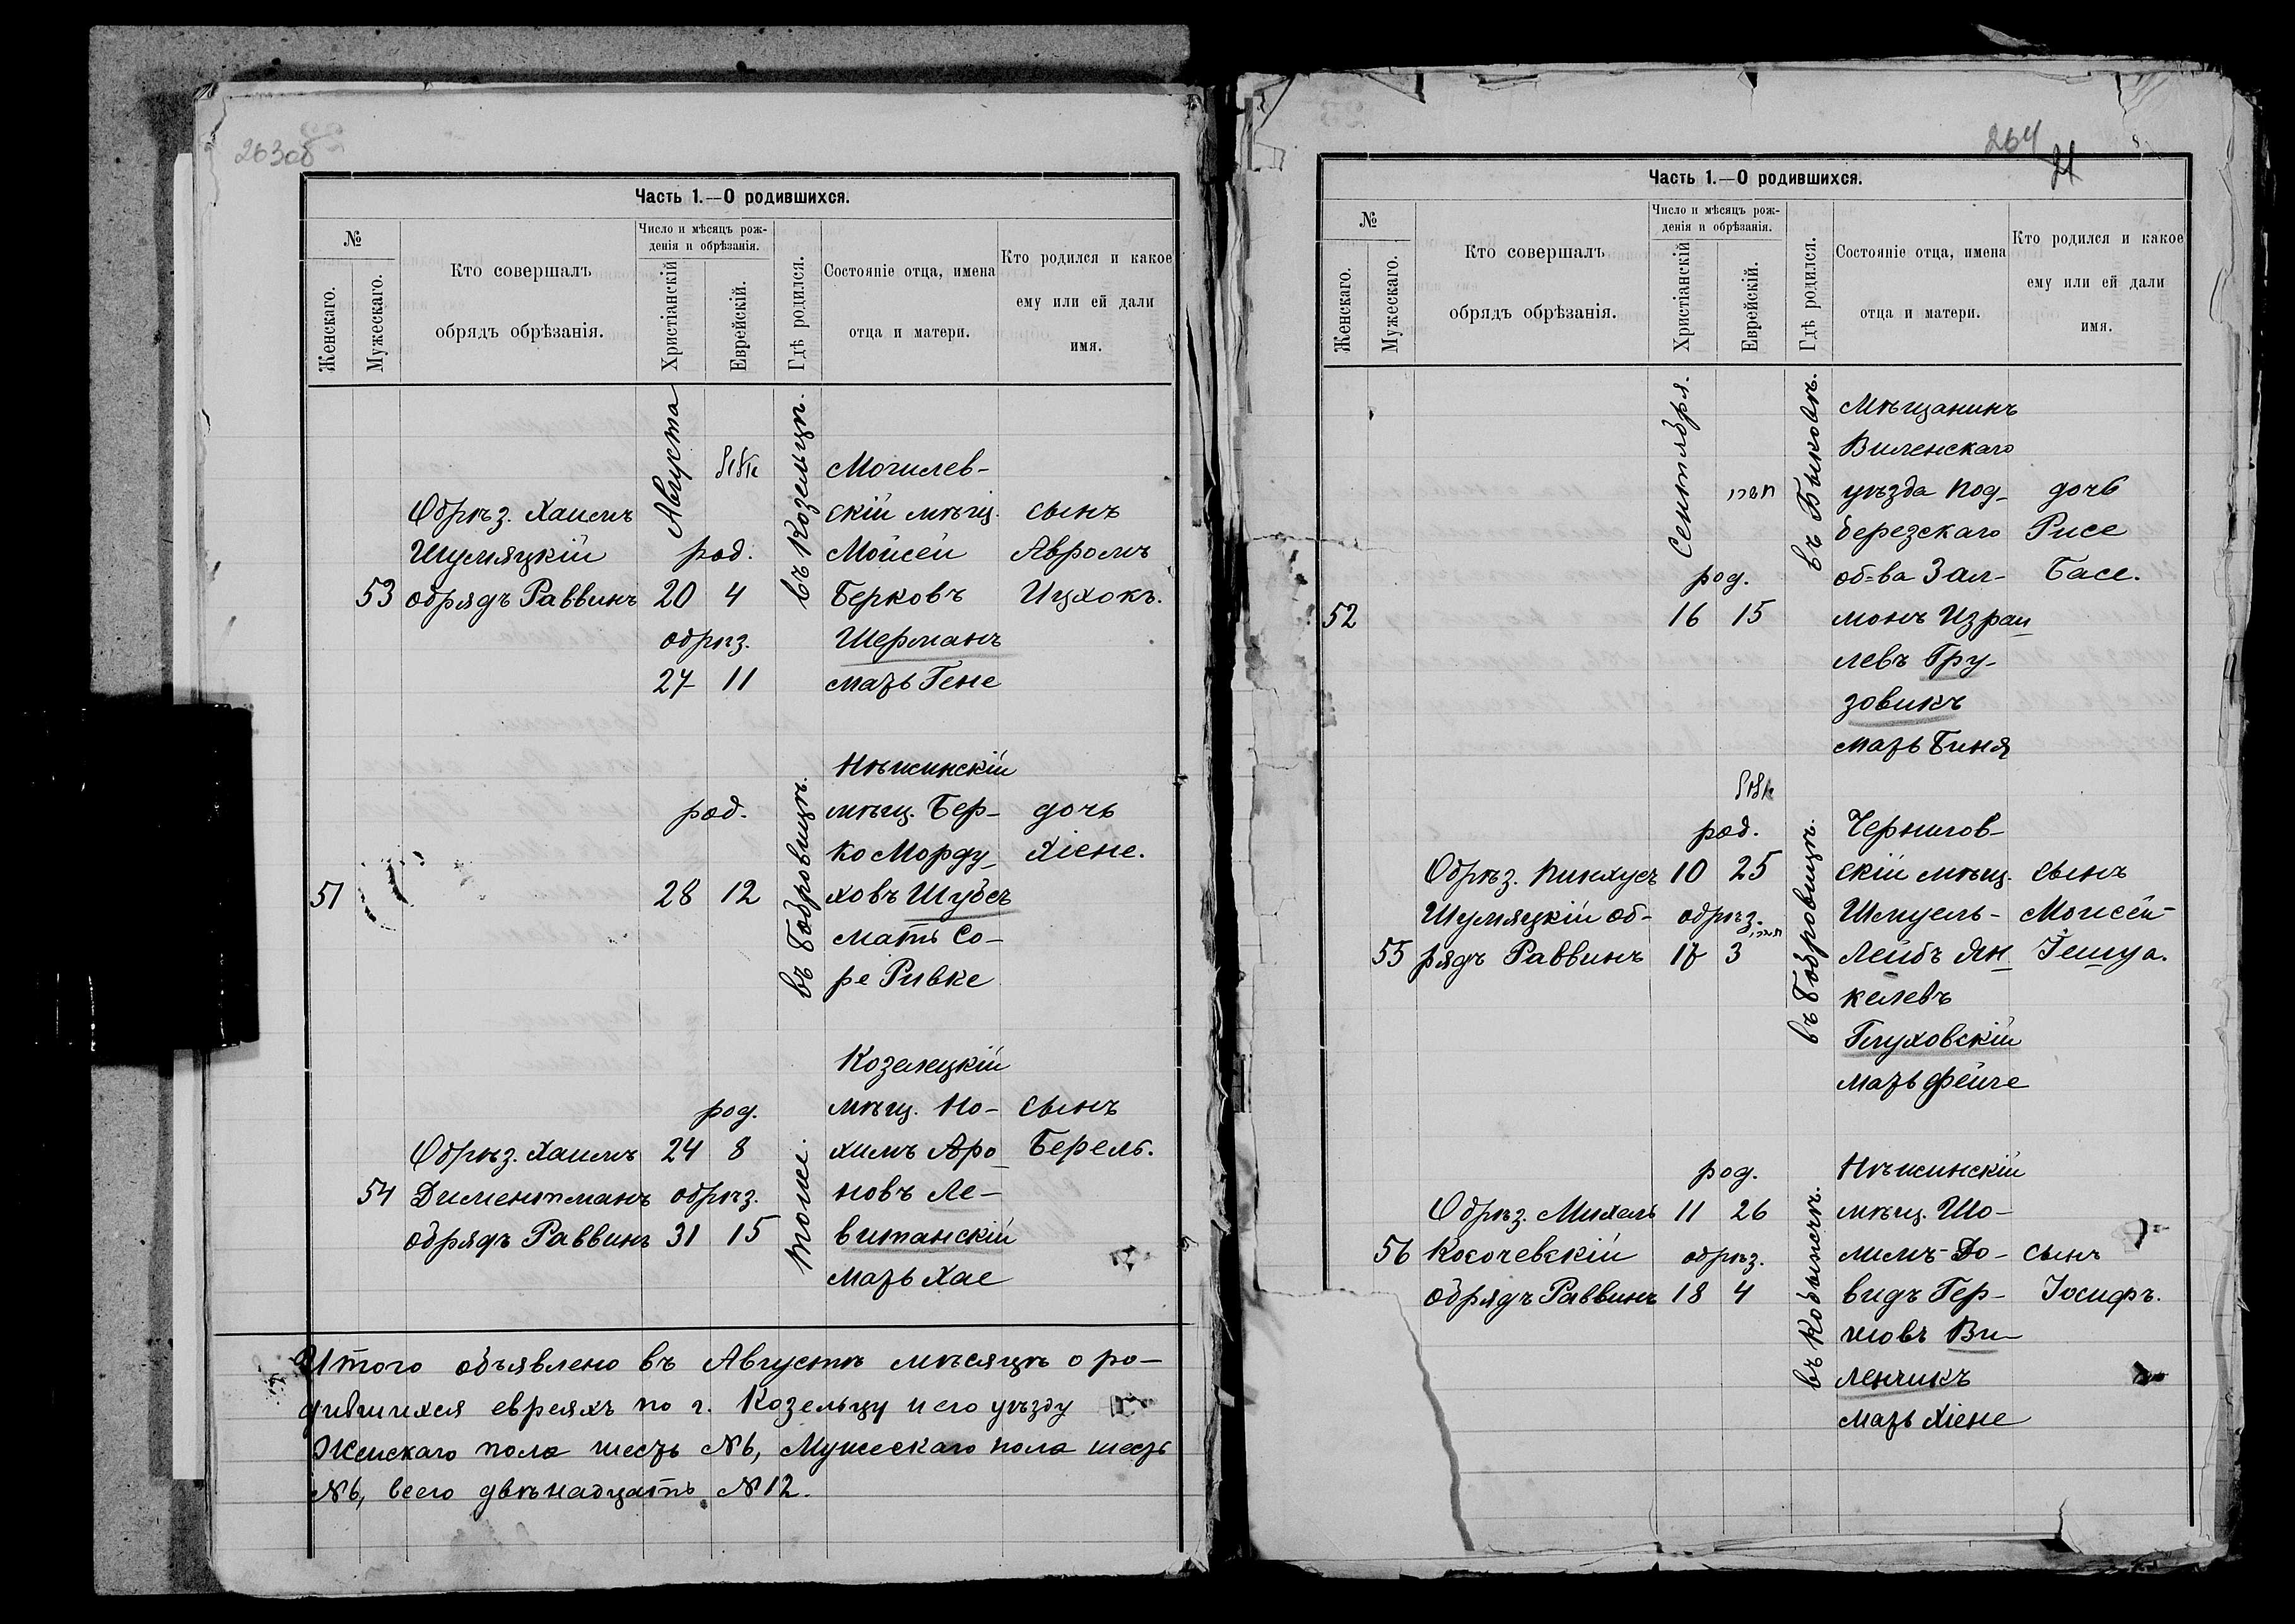 263об
Часть 1.—О родившихся.
№
Женскаго.
Мужескаго.
Кто совершалъ
обрядъ обрѣзанія.
Число и мѣсяцъ рож-
денія и обрѣзанія.
Христіанскій
Еврейскій.
Гдѣ родился.
Состояніе отца, имена
отца и матери.
Кто родился и какое
ему или ей дали
имя.
53
Обрѣз. Хаимъ
Шумяцкій
обрядъ Раввинъ
Августа
אלול
род.
20 4
обрѣз.
27 11
въ Козельцѣ.
Могилев-
скій мѣщ.
Мойсей
Берковъ
Шерманъ
мать Гене
сынъ
Авромъ
Ицхокъ.
51
род.
28 12
въ Бобровицѣ.
Нѣжинскій
мѣщ. Бер-
ко Морду-
ховъ Шубсъ
мать Со-
ре Ривке
дочь
Хіене.
54
Обрѣз. Хаимъ
Диментманъ
обрядъ Раввинъ
род.
24 8
обрѣз.
31 15
тоже.
Козелецкій
мѣщ. Но-
химъ Аро-
новъ Ле-
витанскій
мать Хае
сынъ
Берель.
Итого объявлено въ Августѣ мѣсяцѣ о ро-
дившихся евреяхъ по г. Козельцу и его уѣзду
Женскаго пола шесть №6, Мужескаго пола шесть
№6, всего двѣнадцать №12.
264
21
Часть 1.—О родившихся.
№
Женскаго.
Мужескаго.
Кто совершалъ
обрядъ обрѣзанія.
Число и мѣсяцъ рож-
денія и обрѣзанія.
Христіанскій
Еврейскій.
Гдѣ родился.
Состояніе отца, имена
отца и матери.
Кто родился и какое
ему или ей дали
имя.
52
Сентября.
תשרי
род.
16 15
въ Быковѣ.
Мѣщанинъ
Виленскаго
уѣзда Под-
березскаго
об-ва Зал-
монъ Израи-
левъ Гру-
зовикъ
мать Биня
дочь
Рисе
Басе.
55
Обрѣз. Пинхусъ
Шумяцкій об-
рядъ Раввинъ
אלול
род.
10 25
обрѣз.
תשרי
17 3
въ Бобровицѣ.
Чернигов-
скій мѣщ.
Шмуель-
Лейбъ Ян-
келевъ
Глуховскій
мать Фейге
сынъ
Моисей-
Гешуа.
56
Обрѣз. Михель
Косачевскій
обрядъ Раввинъ
род.
11 26
обрѣз.
18 4
въ Кобыжчѣ.
Нѣжинскій
мѣщ. Шо-
лимъ-До-
видъ Гер-
шовъ Ви-
ленчикъ
мать Хіене
сынъ
Іосифъ.